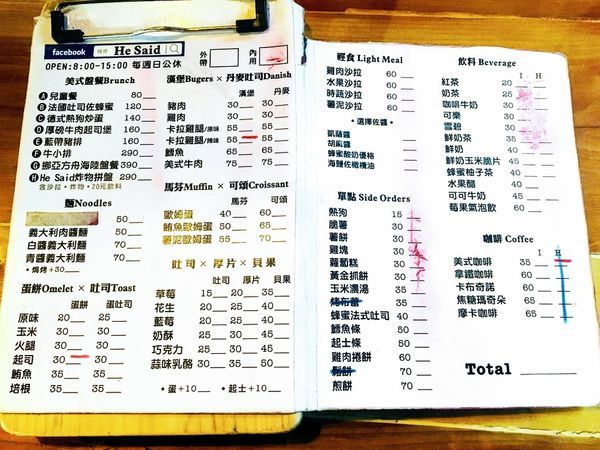 facebook 搜尋 He Said
外帶
內用
OPEN:8:00-15:00 每週日公休
美式盤餐Brunch
A 兒童餐 80
B 法國吐司佐蜂蜜 120
C 德式熱狗炒蛋 140
D 厚磅牛肉起司堡 160
E 藍帶豬排 140
F 牛小排 290
G 挪亞方舟海陸盤餐 390
H He Said炸物拼盤 290
含沙拉·炸物·20元飲料
麵Noodles
50
義大利肉醬麵 50
白醬義大利麵 70
青醬義大利麵 70
·焗烤+30
蛋餅Omelet × 吐司Toast
蛋餅 蛋吐司
原味 20 25
玉米 30 30
火腿 30 30
起司 30 30
鮪魚 35 35
培根 35 35
漢堡Bugers × 丹麥吐司Danish
漢堡 丹麥
豬肉 30 30
雞肉 30 30
卡拉雞腿/原味 55 55
卡拉雞腿/辣味 55 55
鱈魚 55 55
美式牛肉 75 75
馬芬Muffin × 可頌Croissant
馬芬 可頌
歐姆蛋 40 60
鮪魚歐姆蛋 50 65
薯泥歐姆蛋 50 65
吐司 × 厚片 × 貝果
吐司 厚片 貝果
草莓 15 20 35
花生 20 25 40
藍莓 20 25 40
奶酥 20 25 40
巧克力 25 30 45
蒜味乳酪 25 30 50
·蛋+10 ·起士+10
輕食 Light Meal
雞肉沙拉 60
水果沙拉 60
時蔬沙拉 60
薯泥沙拉 60
·選擇佐醬·
凱薩醬
胡麻醬
蜂蜜酸奶優格
海鹽佐橄欖油
單點 Side Orders
熱狗 15
脆薯 30
薯餅 30
雞塊 30
蘿蔔糕 30
黃金抓餅 30
玉米濃湯 35
35
蜂蜜法式吐司 40
鱈魚條 50
起士條 50
雞肉捲餅 60
鬆餅 70
煎餅 70
飲料 Beverage
I H
紅茶 20
奶茶 25
咖啡牛奶 30
可樂 30
雪碧 30
鮮奶茶 35
鮮奶 40
鮮奶玉米脆片 45
蜂蜜柚子茶 40
水果醋 40
可可牛奶 45
莓果氣泡飲 60
咖啡 Coffee
I H
美式咖啡 35
拿鐵咖啡 60
卡布奇諾 60
焦糖瑪奇朵 65
摩卡咖啡 65
Total